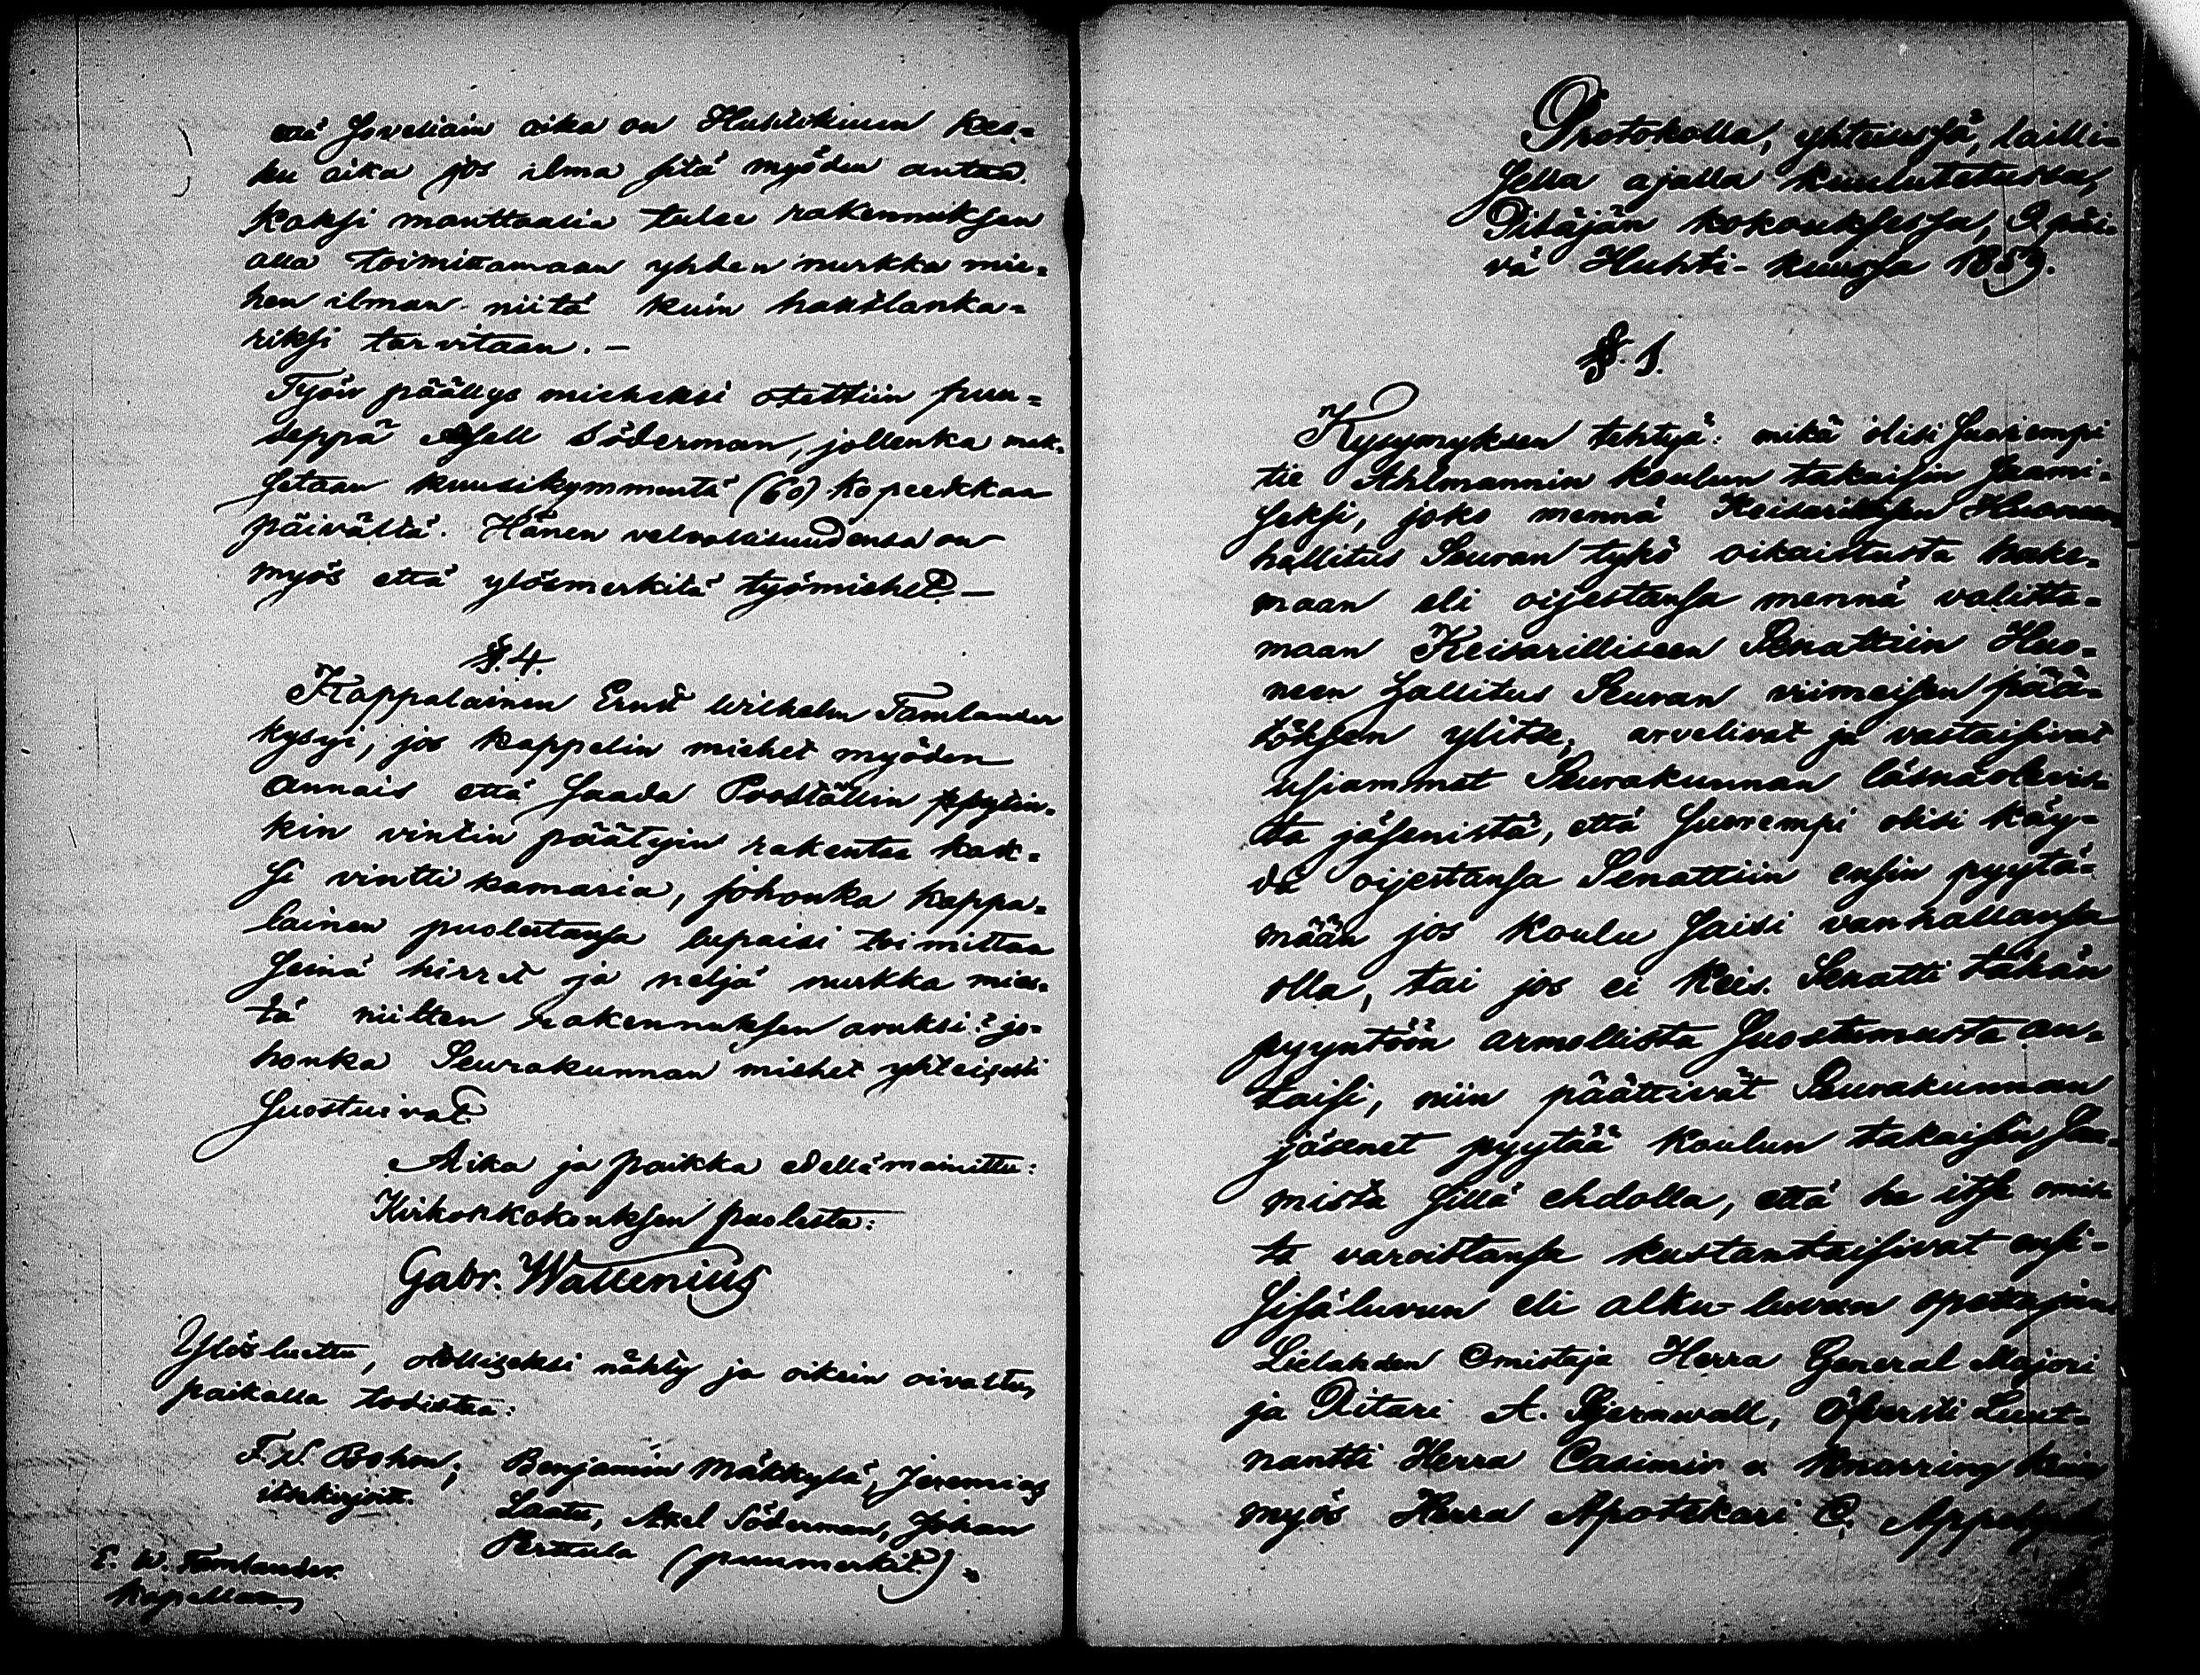 että soveliain aika on Huhtikuun kes-
ku aika jos ilma sitä myöden antaa.
kaksi manttaalia tulee rakennuksen
alla toimittamaan yhden nurkka mie-
hen ilman niitä kuin hantlanka-
riksi tarvitaan. —
Työn päällys mieheksi otettiin puu-
seppä Axell Söderman, jollenka mak-
setaan kuusikymmentä (60) kopeekkaa
päivältä. Hänen velvollisuudensa on
myös että ylösmerkitä työmiehet. —
§. 4.
Kappalainen Ernst Wilhelm Tamlander
kysyi, jos kappelin miehet myöden
annais että saada Proställin
kin vintin päätyin rakentaa kak-
si vintti kamaria, johonka kappa-
lainen puolestansa lupaisi toimittaa
seinä hirret ja neljä nurkka mies-
tä niitten rakennuksen avuksi? jo-
honka Seurakunnan miehet yhteisesti
suostuivat.
Aika ja paikka edellämainittu:
Kirkonkokouksen puolesta:
Gabr. Wallenius
Ylösluettu, otolliseksi nähty ja oikein oivaltu,
paikalla todistaa:
F. W. Bohm, Benjamin Mäkkylä, Jeremias
itsekirjoitt. Laatu, Axel Söderman, Johan
Perttula (puumerkit).
E. W. Tamlander.
Kapellan.
Protokolla, yhteisessä, lailli-
sella ajalla kuulutetussa,
Pitäjän kokouksessa, 2 päi-
vä Huhti-kuussa 1859.
§. 1.
Kysymyksen tehtyä: mikä olisi suorempi
tie Ahlmannin koulun takaisin saami-
seksi, joko mennä Keisarillisen Huoneen
hallitus Seuran tykö oikaistusta hake-
maan eli oijestansa mennä valitta-
maan Keisarilliseen Senattiin Huo-
neen hallitus Seuran viimeisen pää-
töksen ylitse, arvelivat ja vastaisivat
usiammat Seurakunnan läsnäolevis-
ta jäsenistä, että suorempi olisi käy-
dä oijestansa Senattiin ensin pyytä-
mään jos koulu saisi vanhallansa
olla, tai jos ei Keis. Senatti tähän
pyyntöön armollista suostumusta an-
taisi, niin päättivät Seurakunnan
jäsenet pyytää koulun takaisin saa-
mista sillä ehdolla, että he itse omis-
ta varoistansa kustantaisivat ensi-
sisäluvun eli alku-luvun opettajan
Lielahden Omistaja Herra General Majori
ja Ritari A. Stjernwall, Öfversti Luut-
nantti Herra Casimir v. Knorring kuin
myös Herra Apotekari C.